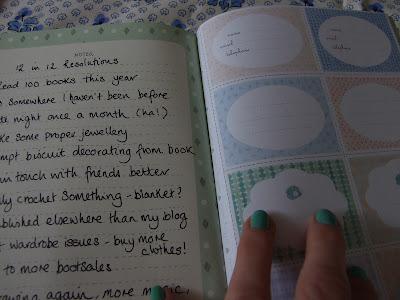 NOTES
12 in 12 Resolutions
ead 100 books this year
somewhere I haven't been before
te night once a month (ha!)
ke some proper jewellery
mpt biscuit decorating from book
in touch with friends better
ly crochet something - blanket?
blished elsewhere than my blog
wardrobe issues - buy more
clothes!
to more bootsales
again, more music,
name
email
telephone
name
email
telephone